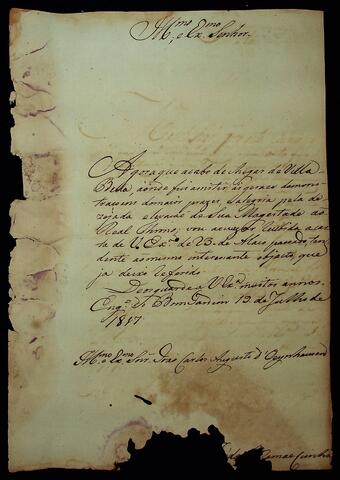 Illmo. Exmo.
e Sr. Senhor.
Agora que acabo de chegar de Villa
Bella, aonde fui assistir as geraes demons-
traçoens do maior prazer, e alegria pela de-
zejada elevação de Sua Magestade ao
Real Throno, vou accuzar recebida a car-
ta de V. Exa. de 23 de Maio passado, ten-
dente ao mesmo interessante objecto, que
ja deixo referido.
Deos guarde a V. Exa. muitos annos.
Bom Jardim 19 de Julho de
1817
Illmo. e Exmo. Snr. João Carlos Augusto d'Oeynhausen
da Cunha